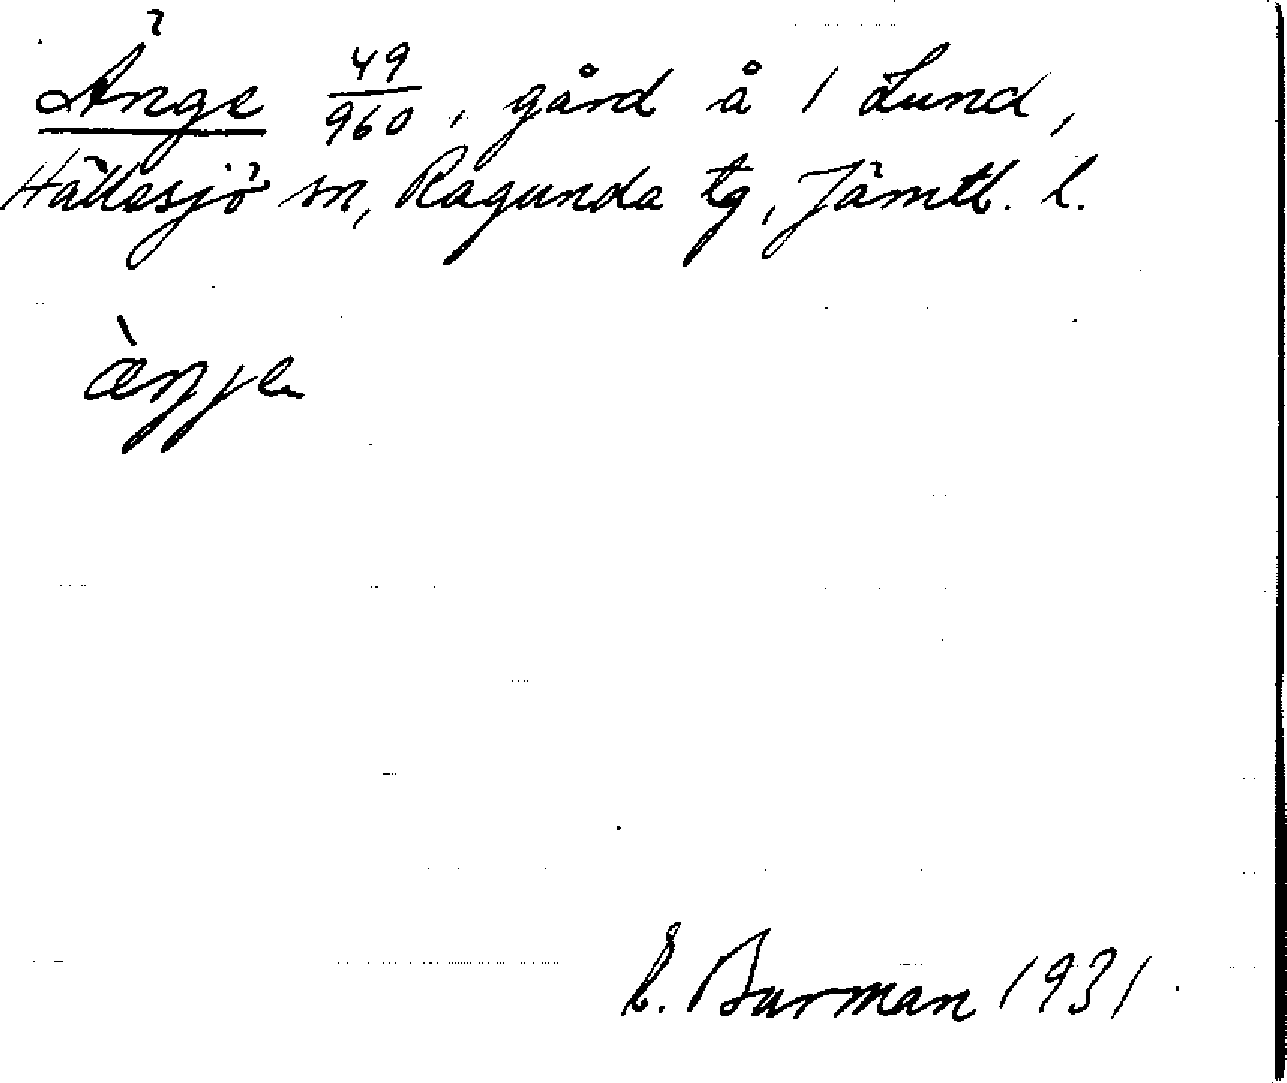 Änge 49/960, gård å 1 Lund,
Hällesjö sn, Ragunda tg, Jämtl. l.
æ̀ŋje
E. Burman 1931